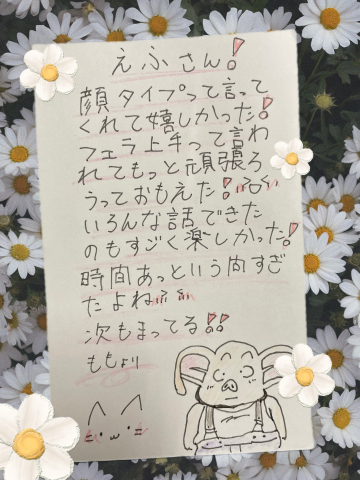 えふさん!
顔タイプって言って
くれて嬉しかった!
フェラ上手って言わ
れてもっと頑張ろ
うっておもえた!ふふ
いろんな話できた
のもすごく楽しかった!
時間あっという間すぎ
たよねふふ
次もまってる!!
ももより